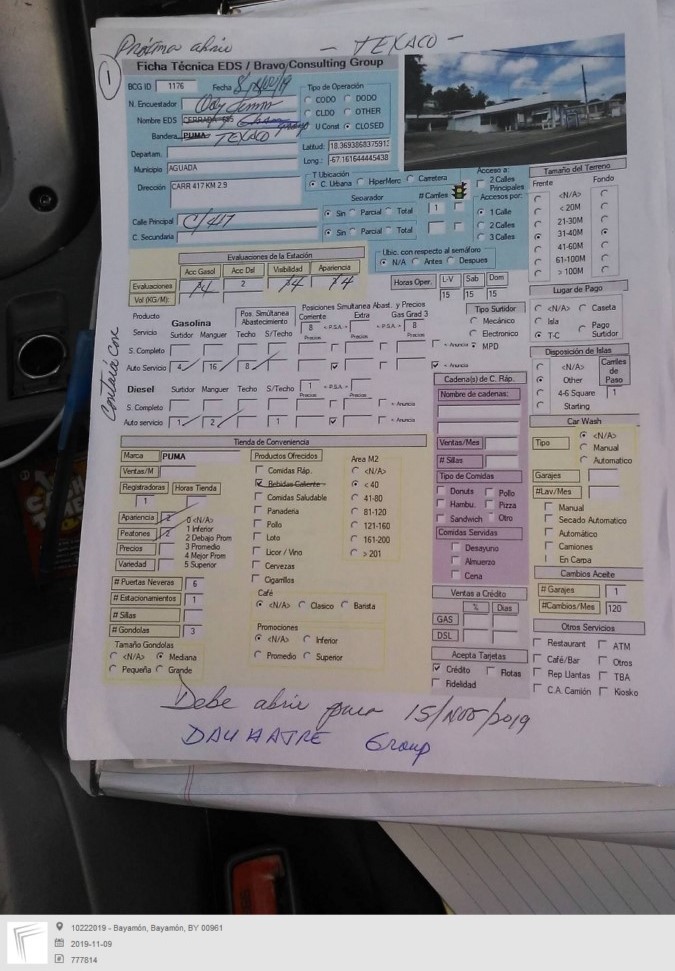 Próxima abrir - TEXACO -
1 Ficha Técnica EDS / Bravo Consulting Group
BCG ID 1176 Fecha
Tipo de Operación
CODO DODO
CLDO OTHER
U Const CLOSED
N. Encuestador
Nombre EDS
Bandera PUMA TEXACO
Latitud: 18.3693868375913
Long.: -67.161644445438
Departam.
Municipio AGUADA
Dirección CARR 417 KM 2.9
T Ubicación
C. Urbana HiperMerc Carretera
Separador # Carriles
Calle Principal C/417 Sin Parcial Total 1
C. Secundaria Sin Parcial Total
Acceso a:
2 Calles Principales
Accesos por:
1 Calle
2 Calles
3 Calles
Tamaño del Terreno
Frente Fondo
<N/A>
< 20M
21-30M
31-40M
41-60M
61-100M
> 100M
Evaluaciones de la Estación
Acc Gasol Acc Dsl Visibilidad Apariencia
Evaluaciones 2
Vol (KG/M):
Ubic. con respecto al semáforo
N/A Antes Despues
Horas Oper. L-V Sab Dom
15 15 15
Lugar de Pago
<N/A> Caseta
Isla Pago Surtidor
T-C
Contacta Cone
Producto Gasolina
Pos. Simúltanea Abastecimiento
Posiciones Simultanea Abast. y Precios
Corriente Extra Gas Grad 3
8 = P.S.A. = P.S.A. 8
Precios Precios Precios
Servicio Surtidor Manguer Techo S/Techo
S. Completo = Anuncio
Auto Servicio 4 16 8 = Anuncio
Tipo Surtidor
Mecánico
Electronico
MPD
Diesel Surtidor Manguer Techo S/Techo 1 = P.S.A.
Precios Precios
S. Completo = Anuncio
Auto servicio 1 2 1 = Anuncio
Disposición de Islas
<N/A> Carriles de Paso
Other
4-6 Square 1
Starting
Cadena(s) de C. Ráp.
Nombre de cadenas:
Ventas/Mes
# Sillas
Tipo de Comidas
Donuts Pollo
Hambu. Pizza
Sandwich Otro
Comidas Servidas
Desayuno
Almuerzo
Cena
Ventas a Crédito
% Dias
GAS
DSL
Acepta Tarjetas
Crédito Flotas
Fidelidad
Car Wash
Tipo <N/A>
Manual
Automatico
Garajes
#Lav/Mes
Manual
Secado Automatico
Automático
Camiones
En Carpa
Cambios Aceite
# Garajes 1
#Cambios/Mes 120
Otros Servicios
Restaurant ATM
Café/Bar Otros
Rep Llantas TBA
C.A. Camión Kiosko
Tienda de Conveniencia
Marca PUMA
Ventas/M
Registradoras Horas Tienda
1
Apariencia 2
Peatones 2
Precios
Variedad
0 <N/A>
1 Inferior
2 Debajo Prom
3 Promedio
4 Mejor Prom
5 Superior
# Puertas Neveras 6
# Estacionamientos 1
# Sillas
# Gondolas 3
Tamaño Gondolas
<N/A> Mediana
Pequeña Grande
Productos Ofrecidos
Comidas Ráp.
Bebidas Caliente
Comidas Saludable
Panaderia
Pollo
Loto
Licor / Vino
Cervezas
Cigarrilos
Area M2
<N/A>
< 40
41-80
81-120
121-160
161-200
> 201
Café
<N/A> Clasico Barista
Promociones
<N/A> Inferior
Promedio Superior
Debe abrir para 15/Nov/2019
DAUHAJRE Group
10222019 - Bayamón, Bayamón, BY 00961
2019-11-09
777814